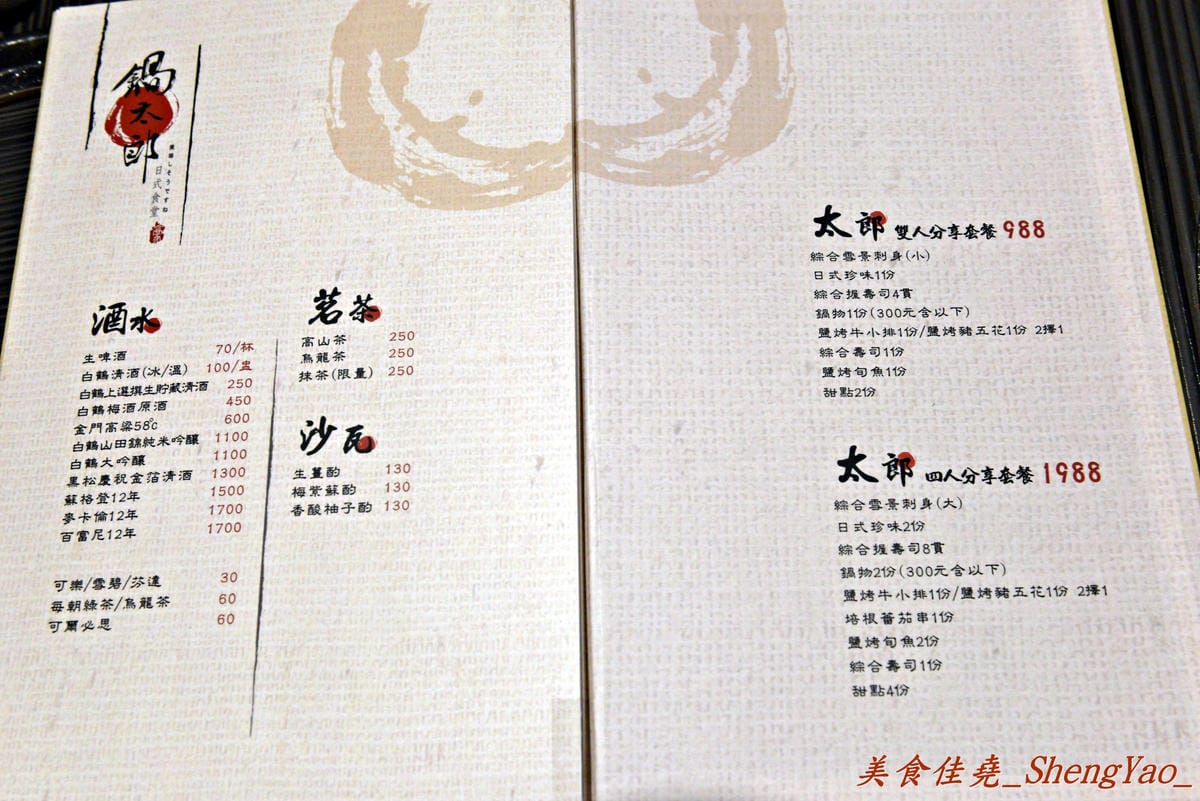 鍋太郎
美味しそうですね
日式食堂
酒水
生啤酒 70/杯
白鶴清酒(冰/溫) 100/盅
白鶴上選撰生貯藏清酒 250
白鶴梅酒原酒 450
金門高粱58℃ 600
白鶴山田錦純米吟釀 1100
白鶴大吟釀 1100
黑松慶祝金箔清酒 1300
蘇格登12年 1500
麥卡倫12年 1700
百富尼12年 1700
可樂/雪碧/芬達 30
每朝綠茶/烏龍茶 60
可爾必思 60
茗茶
高山茶 250
烏龍茶 250
抹茶(限量) 250
沙瓦
生薑酌 130
梅紫蘇酌 130
香酸柚子酌 130
太郎 雙人分享套餐 988
綜合雪景刺身(小)
日式珍味1份
綜合握壽司4貫
鍋物1份(300元含以下)
鹽烤牛小排1份/鹽烤豬五花1份 2擇1
綜合壽司1份
鹽烤旬魚1份
甜點2份
太郎 四人分享套餐 1988
綜合雪景刺身(大)
日式珍味2份
綜合握壽司8貫
鍋物2份(300元含以下)
鹽烤牛小排1份/鹽烤豬五花1份 2擇1
培根蕃茄串1份
鹽烤旬魚2份
綜合壽司1份
甜點4份
美食佳堯_ShengYao_